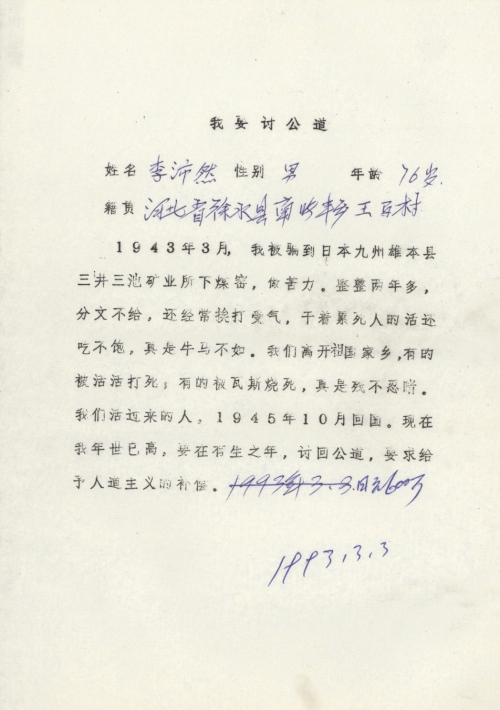 我要讨公道
姓名 李沛然 性别 男 年龄 76岁
籍贯 河北省徐水县南 乡王百村
1943年3月，我被骗到日本九州雄本县
三井三池矿业所下煤窑，做苦力。整整两年多，
分文不给，还经常挨打受气，干着累死人的活还
吃不饱，真是牛马不如。我们离开祖国家乡，有的
被活活打死；有的被瓦斯烧死，真是残不忍睹。
我们活过来的人，1945年10月回国。现在
我年世已高，要在有生之年，讨回公道，要求给
予人道主义的补偿。1993年3.3.日元600万
1993.3.3